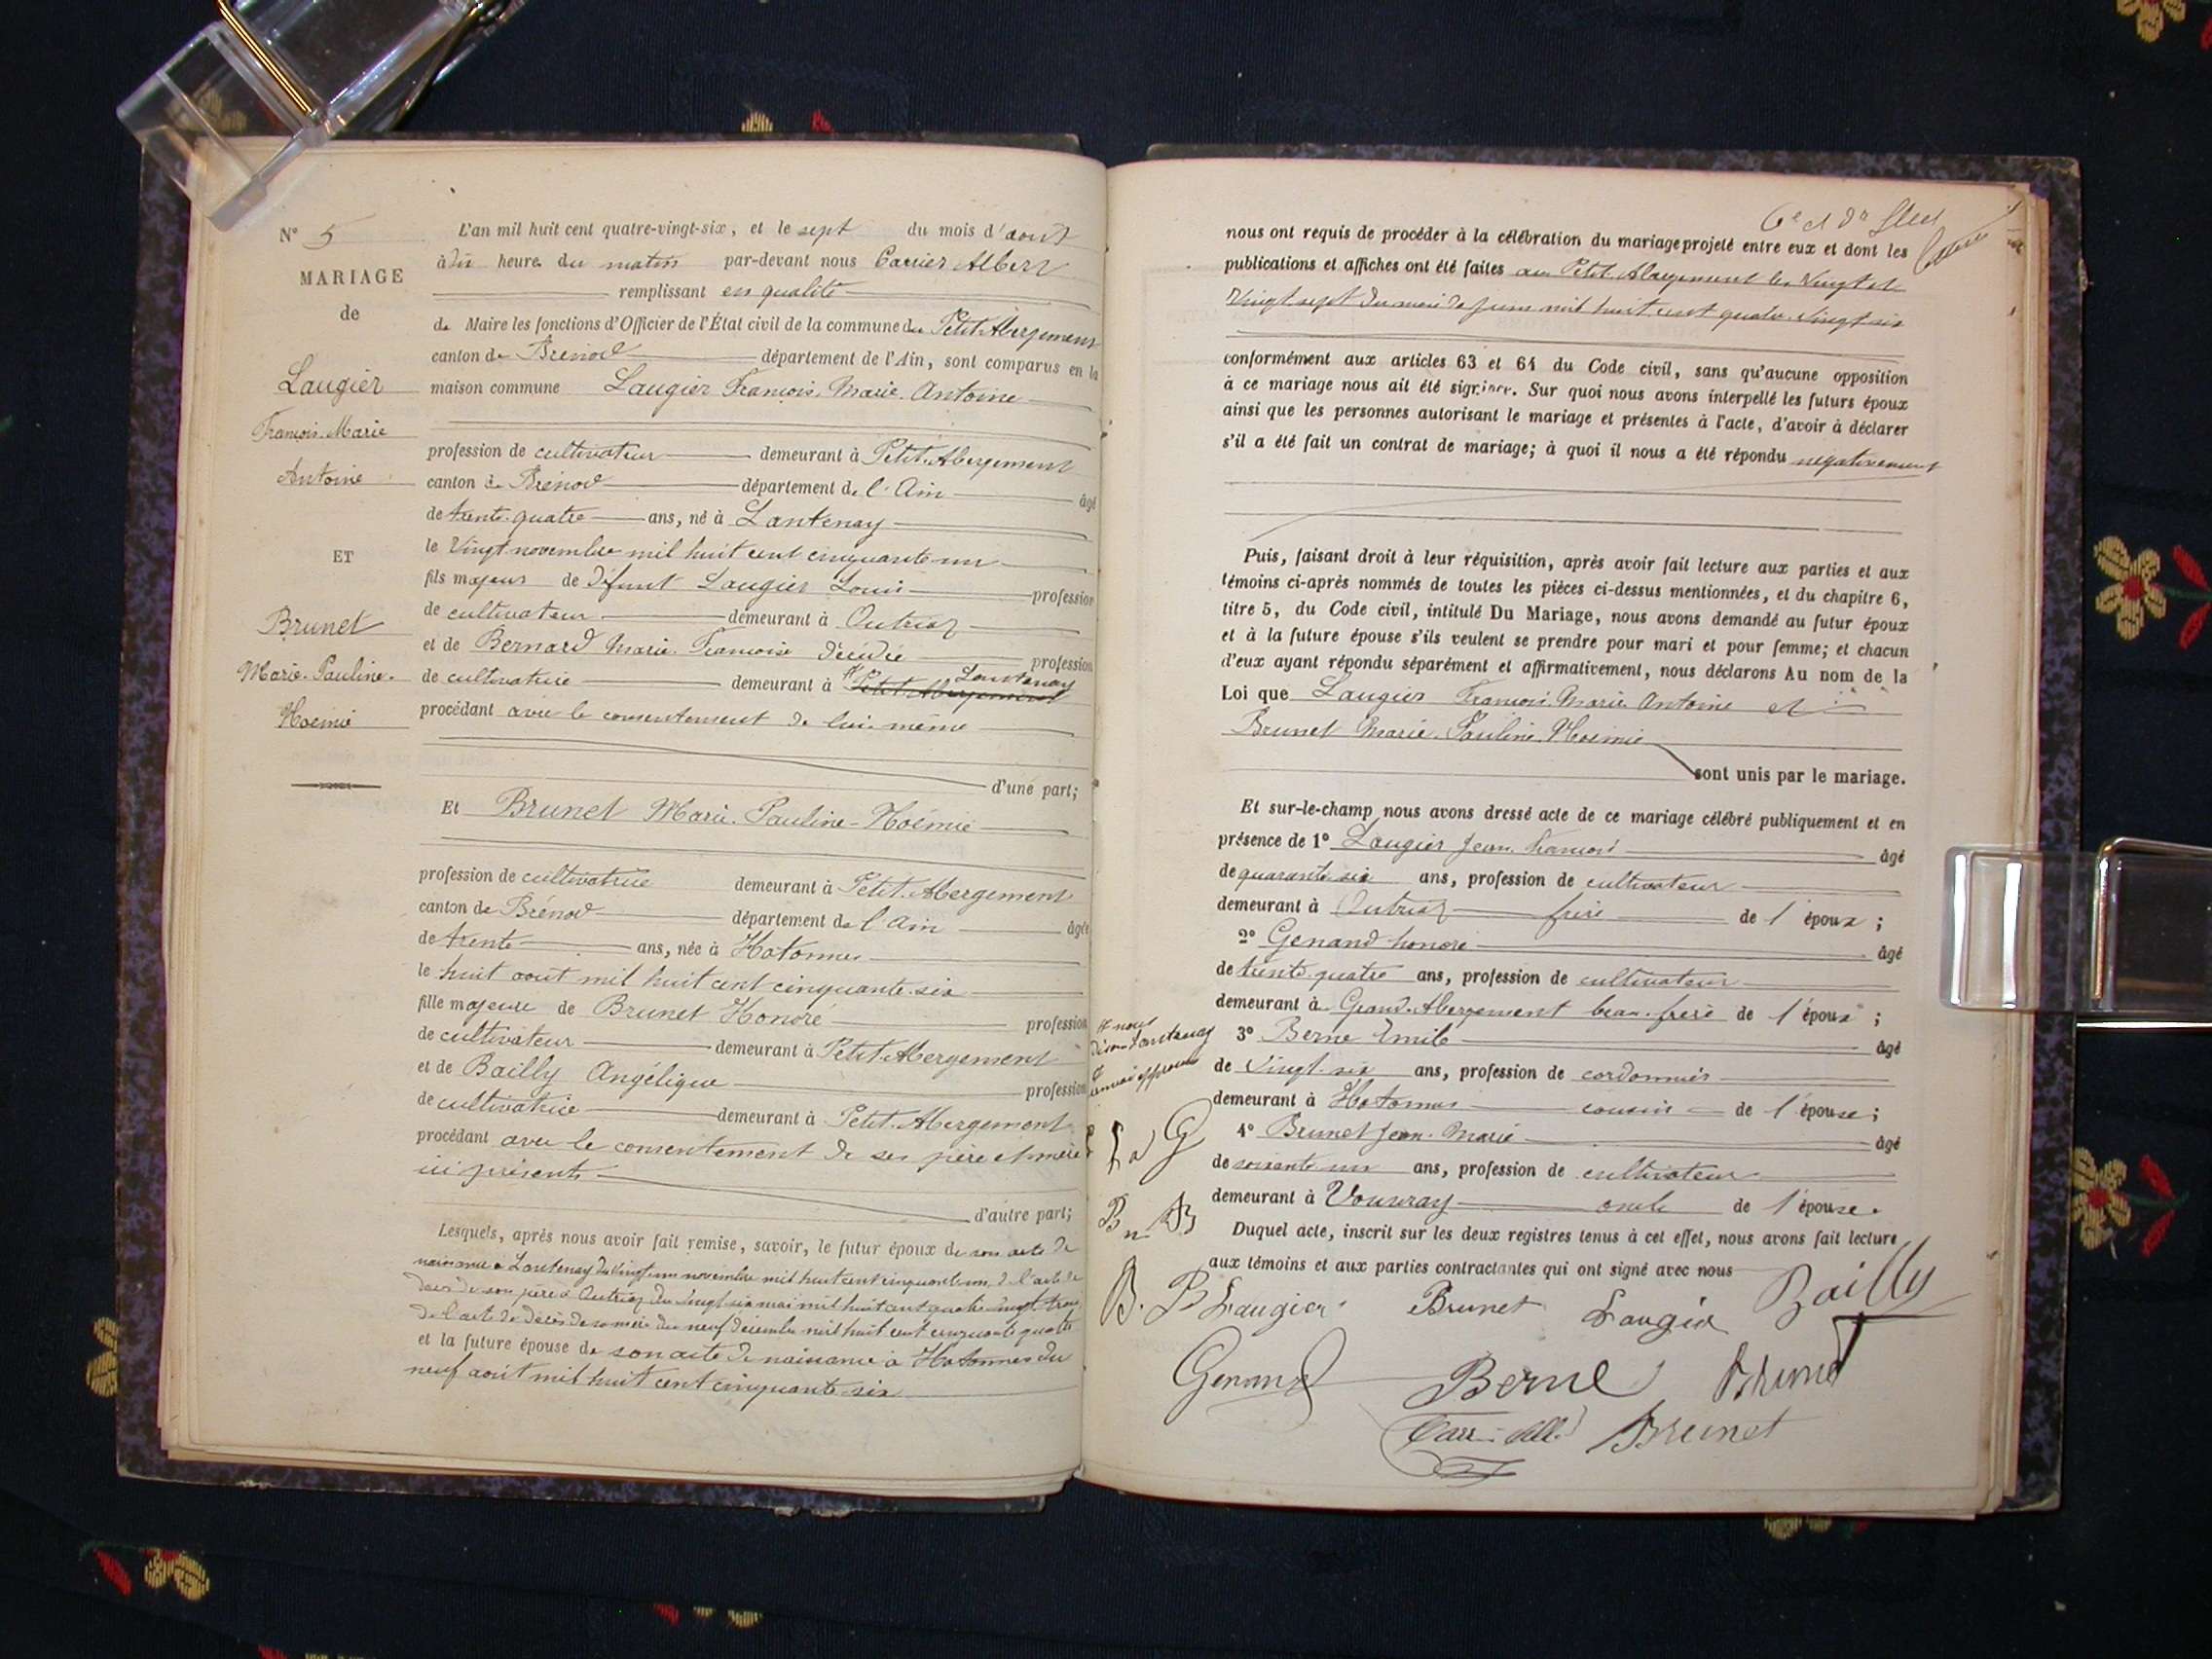 N° 5
MARIAGE
de
Laugier
François-Marie
Antoine
ET
Brunet
Marie-Pauline-
Noémie
L'an mil huit cent quatre-vingt-six, et le sept du mois d'aout
à dix heure du matin par-devant nous Carrier Albert
remplissant en qualité
de Maire les fonctions d'Officier de l'État civil de la commune du Petit Abergement
canton de Brénod département de l'Ain, sont comparus en la
maison commune Laugier François Marie Antoine
profession de cultivateur demeurant à Petit-Abergement
canton de Brénod département de l'Ain âgé
de trente-quatre ans, né à Lantenay
le vingt novembre mil huit cent cinquante un
fils majeur de défunt Laugier Louis profession
de cultivateur demeurant à Outriaz
et de Bernard Marie Françoise décédée profession
de cultivatrice demeurant à Petit Abergement Lantenay
procédant avec le consentement de lui-même
d'une part;
Et Brunet Marie-Pauline-Noémie
profession de cultivatrice demeurant à Petit-Abergement
canton de Brénod département de l'Ain âgée
de trente ans, née à Hotonnes
le huit aout mil huit cent cinquante-six
fille majeure de Brunet Honoré profession
de cultivateur demeurant à Petit Abergement
et de Bailly Angélique profession
de cultivatrice demeurant à Petit-Abergement
procédant avec le consentement de ses père et mère
ici présents
d'autre part;
Lesquels, après nous avoir fait remise, savoir, le futur époux de son acte de
naissance à Lantenay du vingt un novembre mil huit cent cinquante un, de l'acte de
décès de son père à Outriaz du vingt six mai mil huit cent quatre vingt trois
de l'acte de décès de sa mère du neuf décembre mil huit cent cinquante quatre
et la future épouse de son acte de naissance à Hotonnes du
neuf aout mil huit cent cinquante-six
nous ont requis de procéder à la célébration du mariage projeté entre eux et dont les
publications et affiches ont été faites au Petit Abergement les vingt et
vingt sept du mois de juin mil huit cent quatre-vingt six
conformément aux articles 63 et 64 du Code civil, sans qu'aucune opposition
à ce mariage nous ait été signifiée. Sur quoi nous avons interpellé les futurs époux
ainsi que les personnes autorisant le mariage et présentes à l'acte, d'avoir à déclarer
s'il a été fait un contrat de mariage; à quoi il nous a été répondu négativement
Puis, faisant droit à leur réquisition, après avoir fait lecture aux parties et aux
témoins ci-après nommés de toutes les pièces ci-dessus mentionnées, et du chapitre 6,
titre 5, du Code civil, intitulé Du Mariage, nous avons demandé au futur époux
et à la future épouse s'ils veulent se prendre pour mari et pour femme; et chacun
d'eux ayant répondu séparément et affirmativement, nous déclarons Au nom de la
Loi que Laugier François Marie Antoine et
Brunet Marie-Pauline-Noémie
sont unis par le mariage.
Et sur-le-champ nous avons dressé acte de ce mariage célébré publiquement et en
présence de 1° Laugier Jean François âgé
de quarante-six ans, profession de cultivateur
demeurant à Outriaz frère de l'époux;
2° Genand honoré âgé
de trente-quatre ans, profession de cultivateur
demeurant à Grand-Abergement beau-frère de l'époux;
3° Berne Emile âgé
de vingt-six ans, profession de cordonnier
demeurant à Hotonnes cousin de l'épouse;
4° Brunet Jean-Marie âgé
de soixante un ans, profession de cultivateur
demeurant à Vouvray oncle de l'épouse.
Duquel acte, inscrit sur les deux registres tenus à cet effet, nous avons fait lecture
aux témoins et aux parties contractantes qui ont signé avec nous
Laugier Brunet Laugier Bailly
Genand Berne Brunet
Brunet